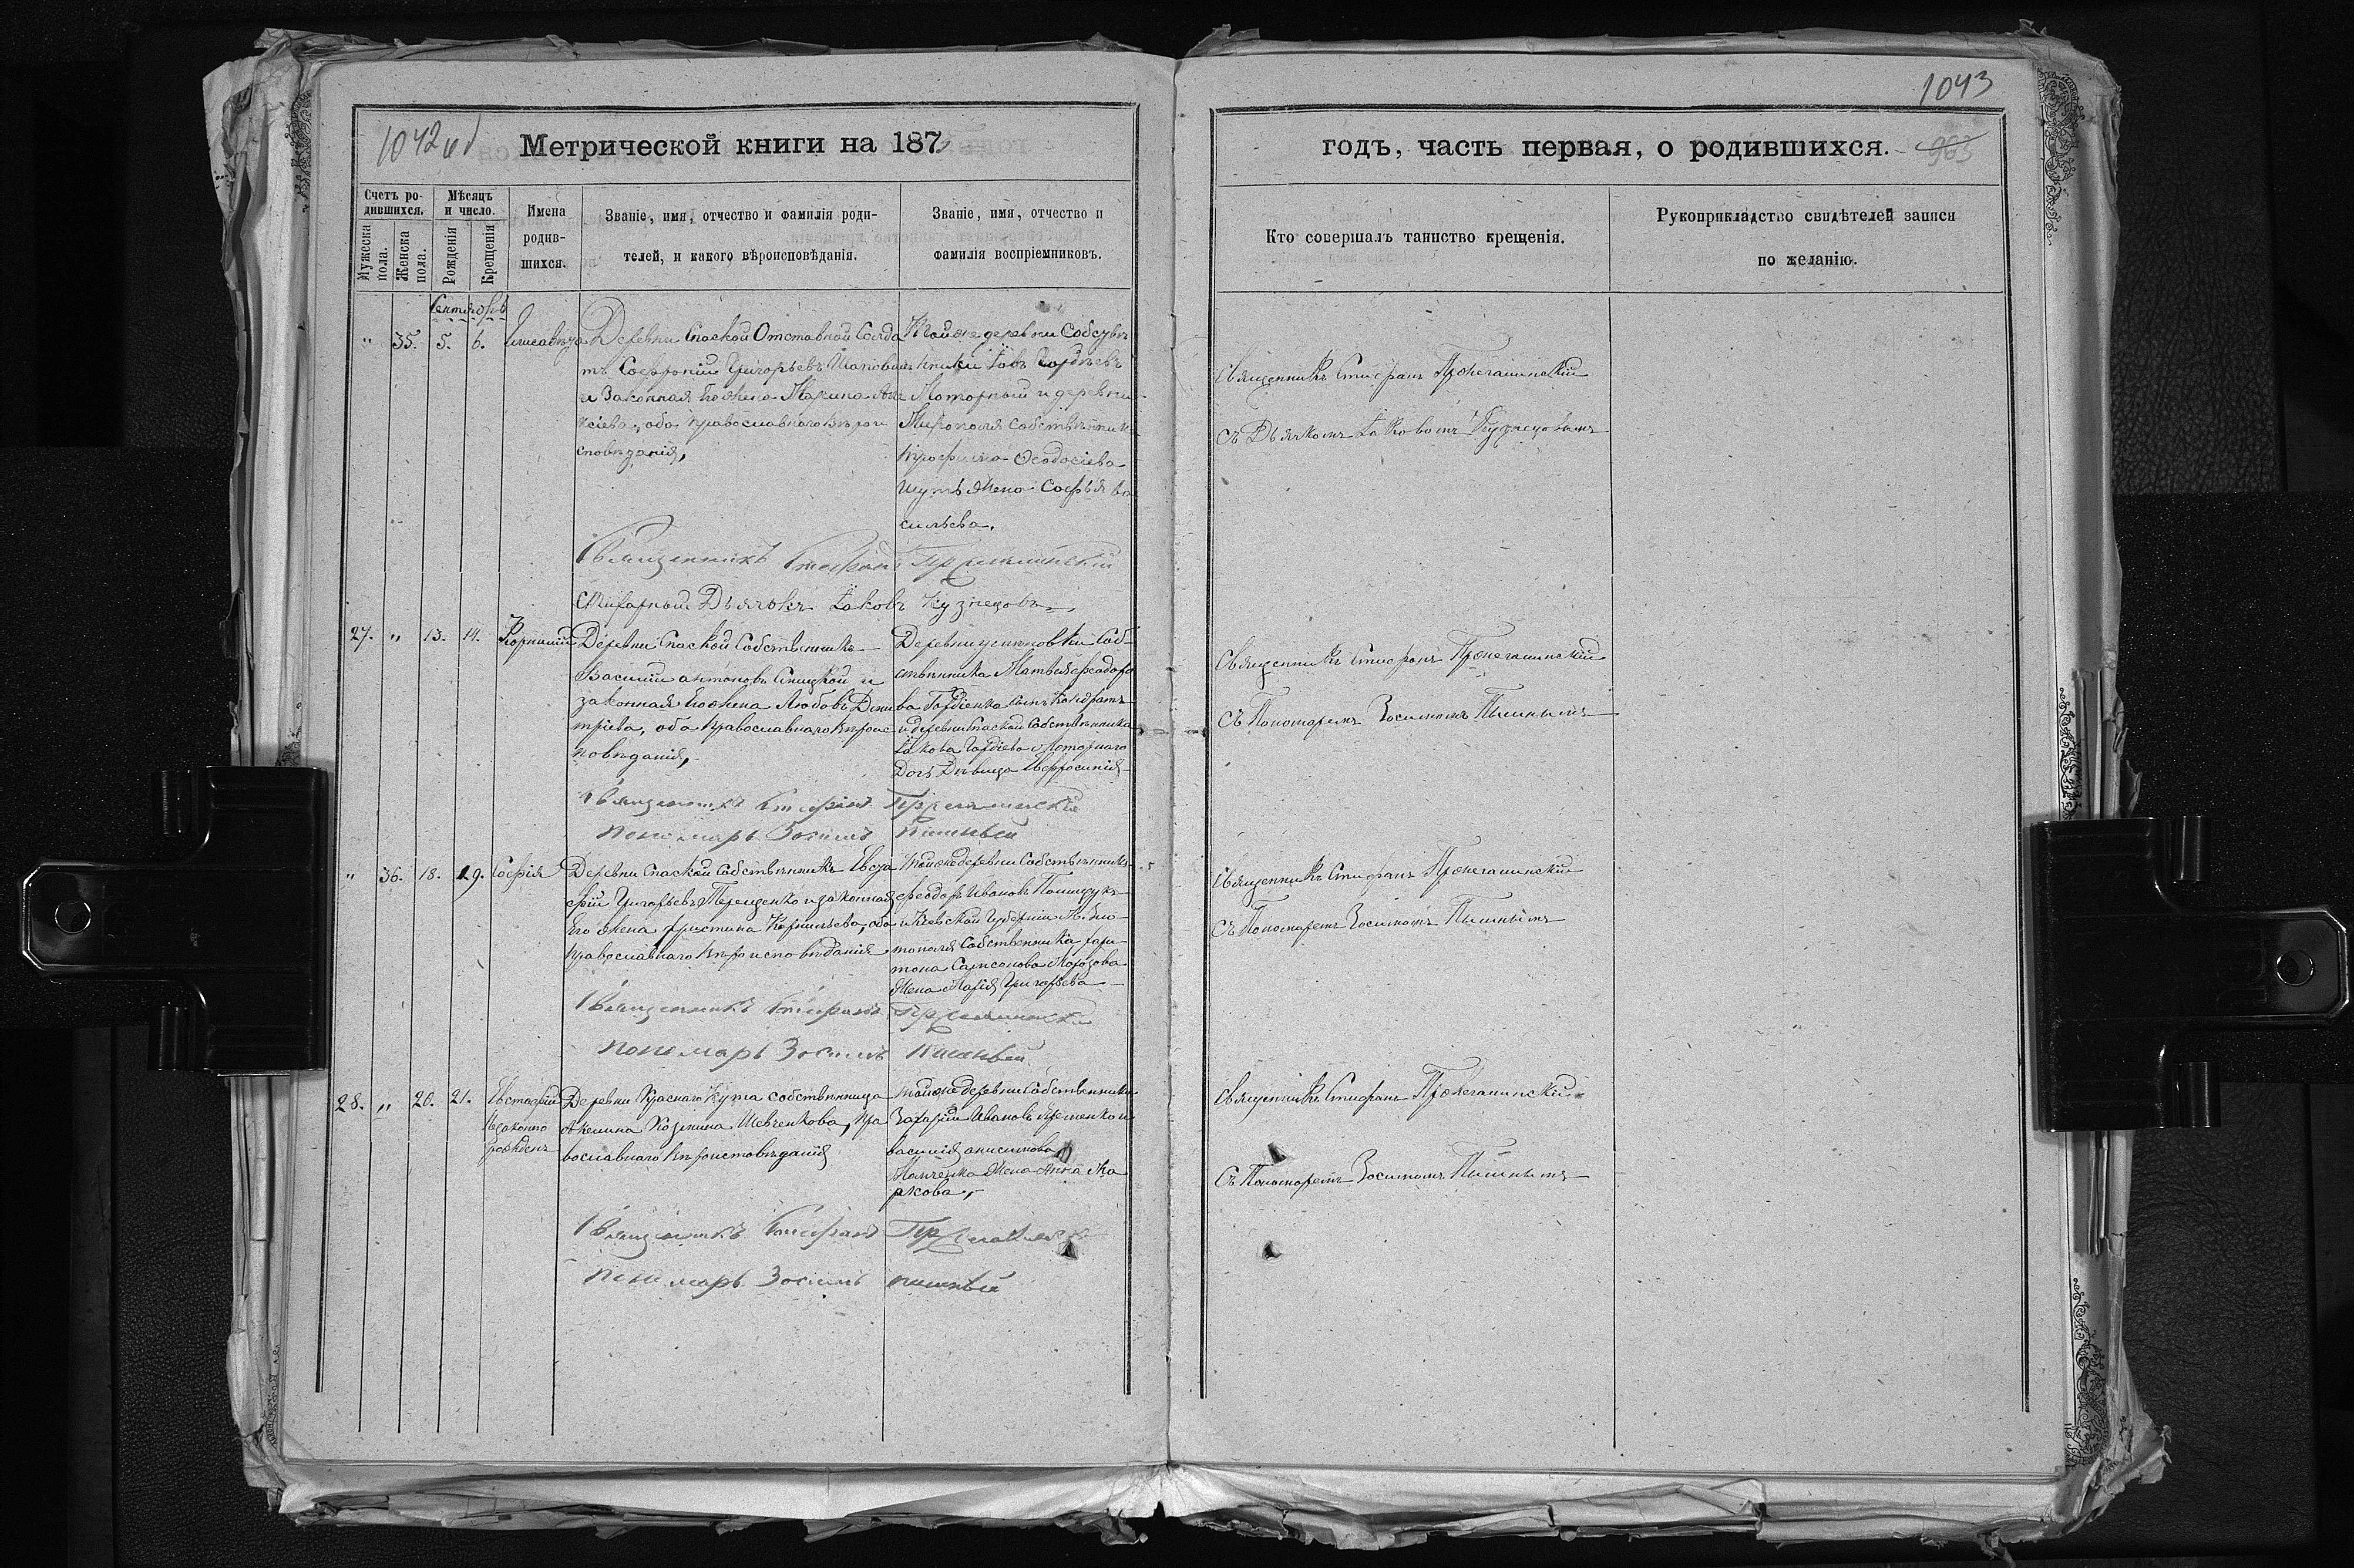 1042 об
Метрической книги на 187
Счетъ ро-
дившихся.
Мужеска
пола.
Женска
пола.
Мѣсяцъ
и число.
Рожденія
Крещенія
Имена
родив-
шихся.
Званіе, имя, отчество и фамилія роди-
телей, и какого вѣроисповѣданія.
Званіе, имя, отчество и
фамилія воспріемниковъ.
Сентябрь
" 35. 5. 6.
Деревни Спаской Отставной Солда
тъ Софроній Григорьевъ
и Законная Его жена Марина Але
ксіева, оба православнаго вѣрои
сповѣданія,
Тойже деревни Собствен
Іовъ Гордѣевъ
Моторный и деревни
Мирополя собственник
Трофима Феодосіева
жена Софья Ва
сильева.
Священникъ Стефанъ
Дьячокъ Іаковъ Кузнецовъ
27. " 13. 14. Корнилій
Деревни Спаской Собственникъ
Василій Антоновъ и
законная Его жена Любовь Дими
тріева, оба православнаго вѣроис
повѣданія,
Деревни Соб-
ственника Матвѣя Феодоро
ва Гордіенка сынъ Кондратъ
и деревни Спаской Собственника
Іакова Гордіева Моторнаго
Дочь Дѣвица Ивфросинія
Священникъ Стефанъ
пономарь Зосимъ Пишный
" 36. 18. 19. Софія
Деревни Спаской Собственникъ Евста
фій Григорьевъ Терещенко и законная
Его жена Христина Корнильева, оба
православнаго вѣроисповѣданія
тойже деревни Собственникъ
Феодоръ Ивановъ Полищукъ
и Кіевской Губерніи
Собственника Хари
тона Самсонова Морозова
жена Марія Григорьева
Священникъ Стефанъ
пономарь Зосимъ Пишный
28. " 20. 21. Евстафій
Незаконно
рожденъ
Деревни Краснаго Кута собственница
Козьмина Шевченкова, пра
вославнаго вѣроисповѣданія
тойже деревни Собственники
Захарій Ивановъ Яременко и
Василія Анисимова
жена Анна Ма
ркова,
Священникъ Стефанъ
пономарь Зосимъ пишный
1043
годъ, часть первая, о родившихся.
963
Кто совершалъ таинство крещенія.
Рукоприкладство свидѣтелей записи
по желанію.
Священникъ Стефанъ
съ Дьячкомъ Іаковомъ Кузнецовымъ
Священникъ Стефанъ
съ Пономаремъ Зосимомъ Пишнымъ
Священникъ Стефанъ
съ Пономаремъ Зосимомъ Пишнымъ
Священникъ Стефанъ
съ Пономаремъ Зосимомъ Пишнымъ